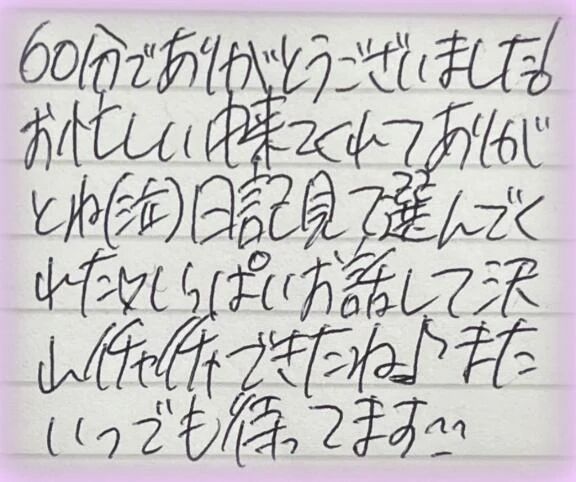 60分でありがとうございました!
お忙しい中来てくれてありが
とね(泣)日記見て選んでく
れた♡いっぱいお話して沢
山イチャイチャできたね♪また
いつでも待ってます^^